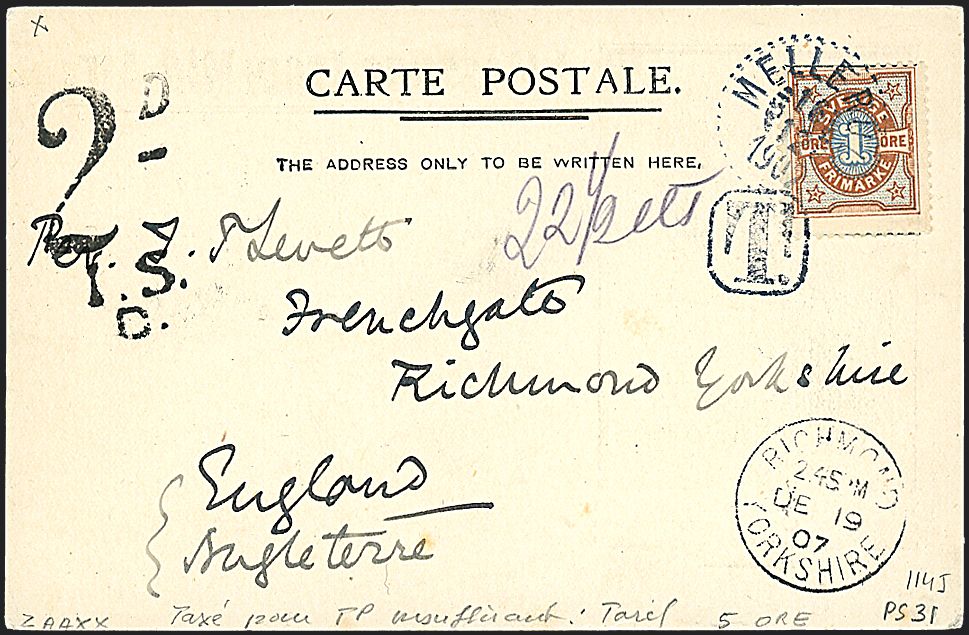 X
CARTE POSTALE.
THE ADDRESS ONLY TO BE WRITTEN HERE.
2D
T.S.
C.
22 1/2 cts
MELLERUD
1907
SVERIGE
1
ÖRE ÖRE
FRIMÄRKE
T.
Rev. J. T Levett
Frenchgate
Richmond Yorkshire
England
Angleterre
RICHMOND
2.45 PM
DE 19
07
YORKSHIRE
114J
PS31
ZAAXX Taxé pour TP insuffisant. Tarif 5 ORE